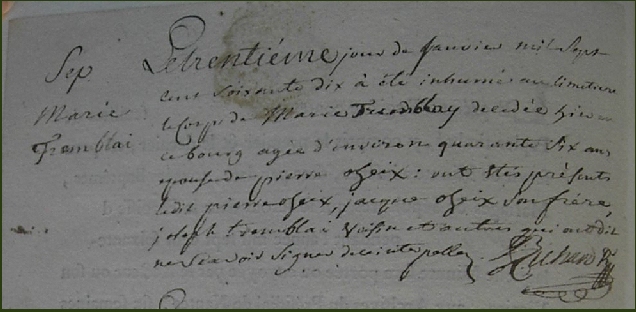 Sep
Marie
Tremblai
Le trentiéme jour de janvie mil sept
cent soixante dix à été inhumé au cimetiere
le corps de Marie Tremblay decedée hier en
ce bourg agée d'environ quarante six ans
epouse de pierre oheix : ont étés présents
ledit pierre oheix, jacque oheix son frère,
joseph tremblai voisin et autres qui ont dit
ne scavoir signer de ce interpellez